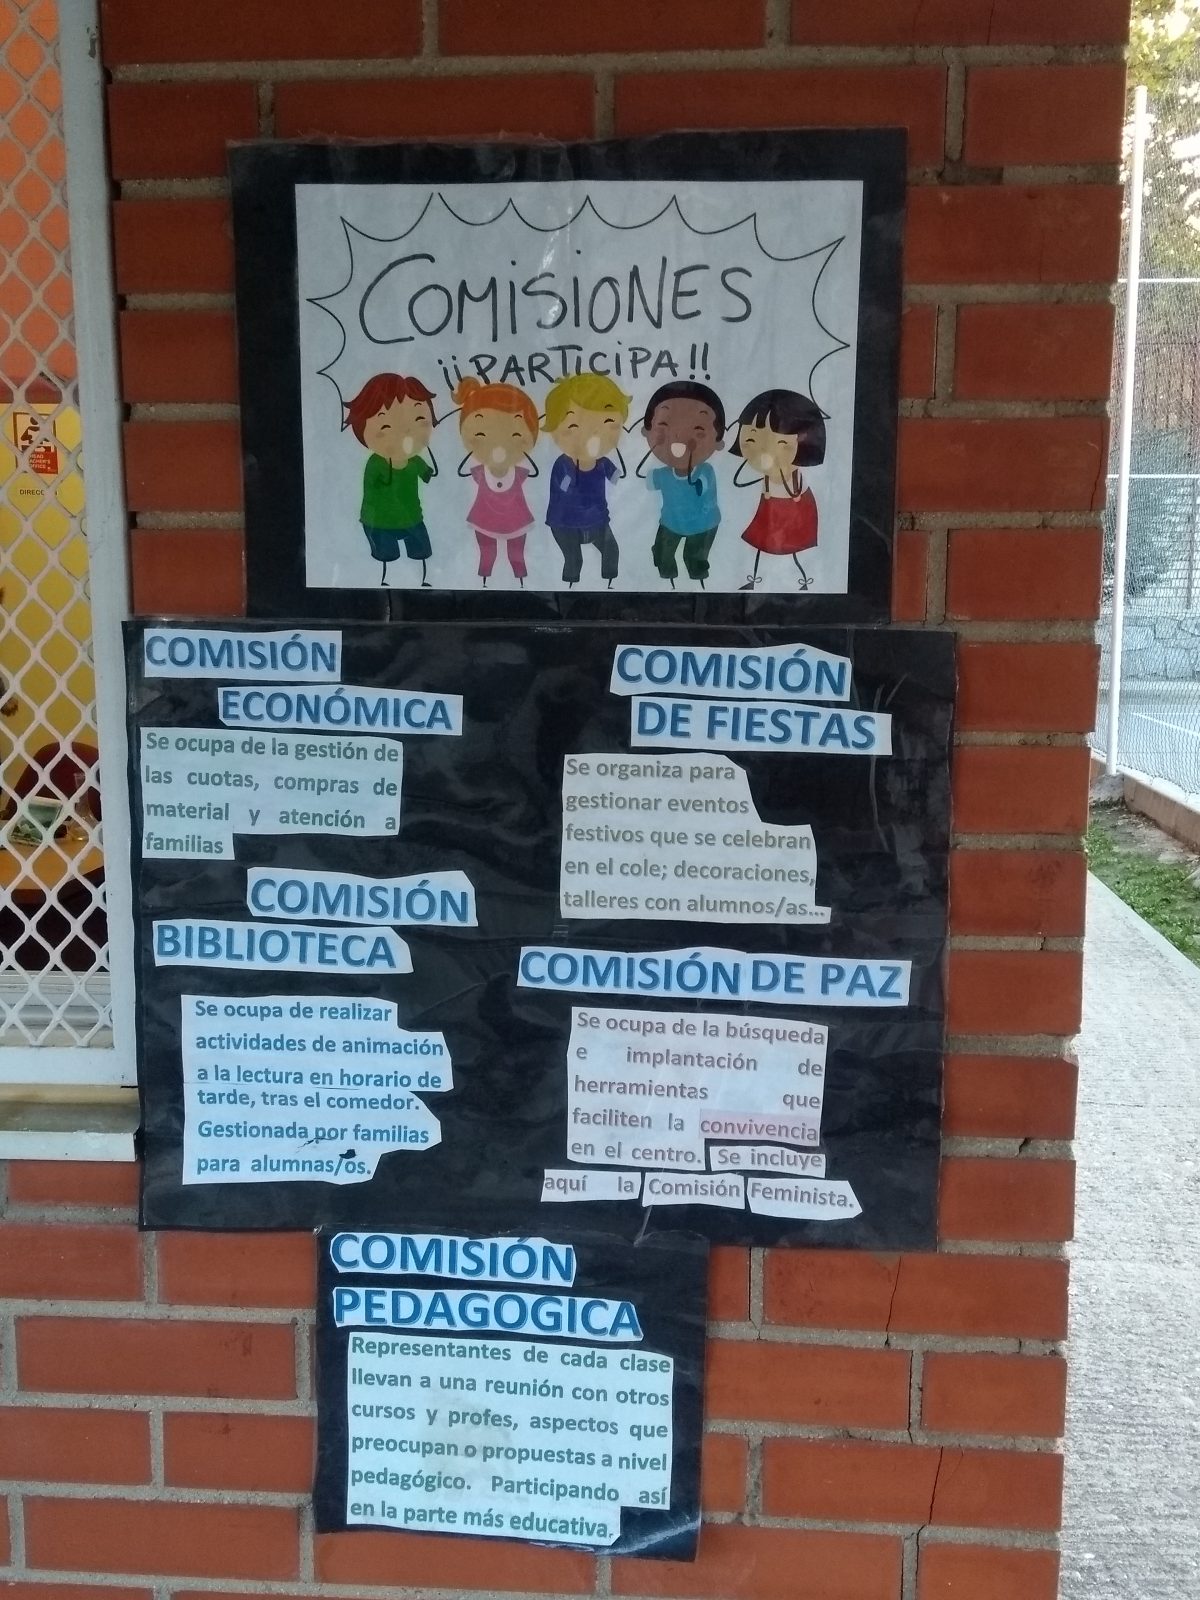 COMISIONES
¡¡PARTICIPA!!
HEAD
TEACHER'S
OFFICE
COMISIÓN
ECONÓMICA
Se ocupa de la gestión de
las cuotas, compras de
material y atención a
familias
COMISIÓN
DE FIESTAS
Se organiza para
gestionar eventos
festivos que se celebran
en el cole; decoraciones,
talleres con alumnos/as...
COMISIÓN
BIBLIOTECA
Se ocupa de realizar
actividades de animación
a la lectura en horario de
tarde, tras el comedor.
Gestionada por familias
para alumnas/os.
COMISIÓN DE PAZ
Se ocupa de la búsqueda
e implantación de
herramientas que
faciliten la convivencia
en el centro. Se incluye
aquí la Comisión Feminista.
COMISIÓN
PEDAGOGICA
Representantes de cada clase
llevan a una reunión con otros
cursos y profes, aspectos que
preocupan o propuestas a nivel
pedagógico. Participando así
en la parte más educativa.